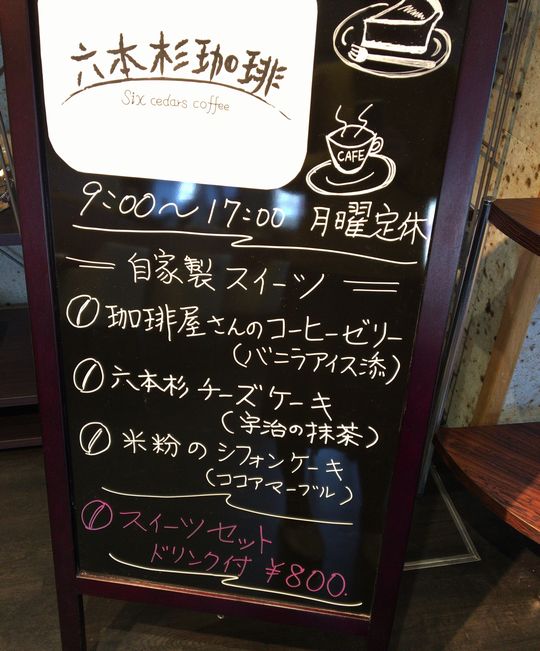 六本杉珈琲
Six cedars coffee
CAFE
9:00～17:00 月曜定休
自家製 スイーツ
珈琲屋さんのコーヒーゼリー
(バニラアイス添)
六本杉 チーズケーキ
(宇治の抹茶)
米粉の シフォンケーキ
(ココアマーブル)
スイーツセット
ドリンク付 ¥800.